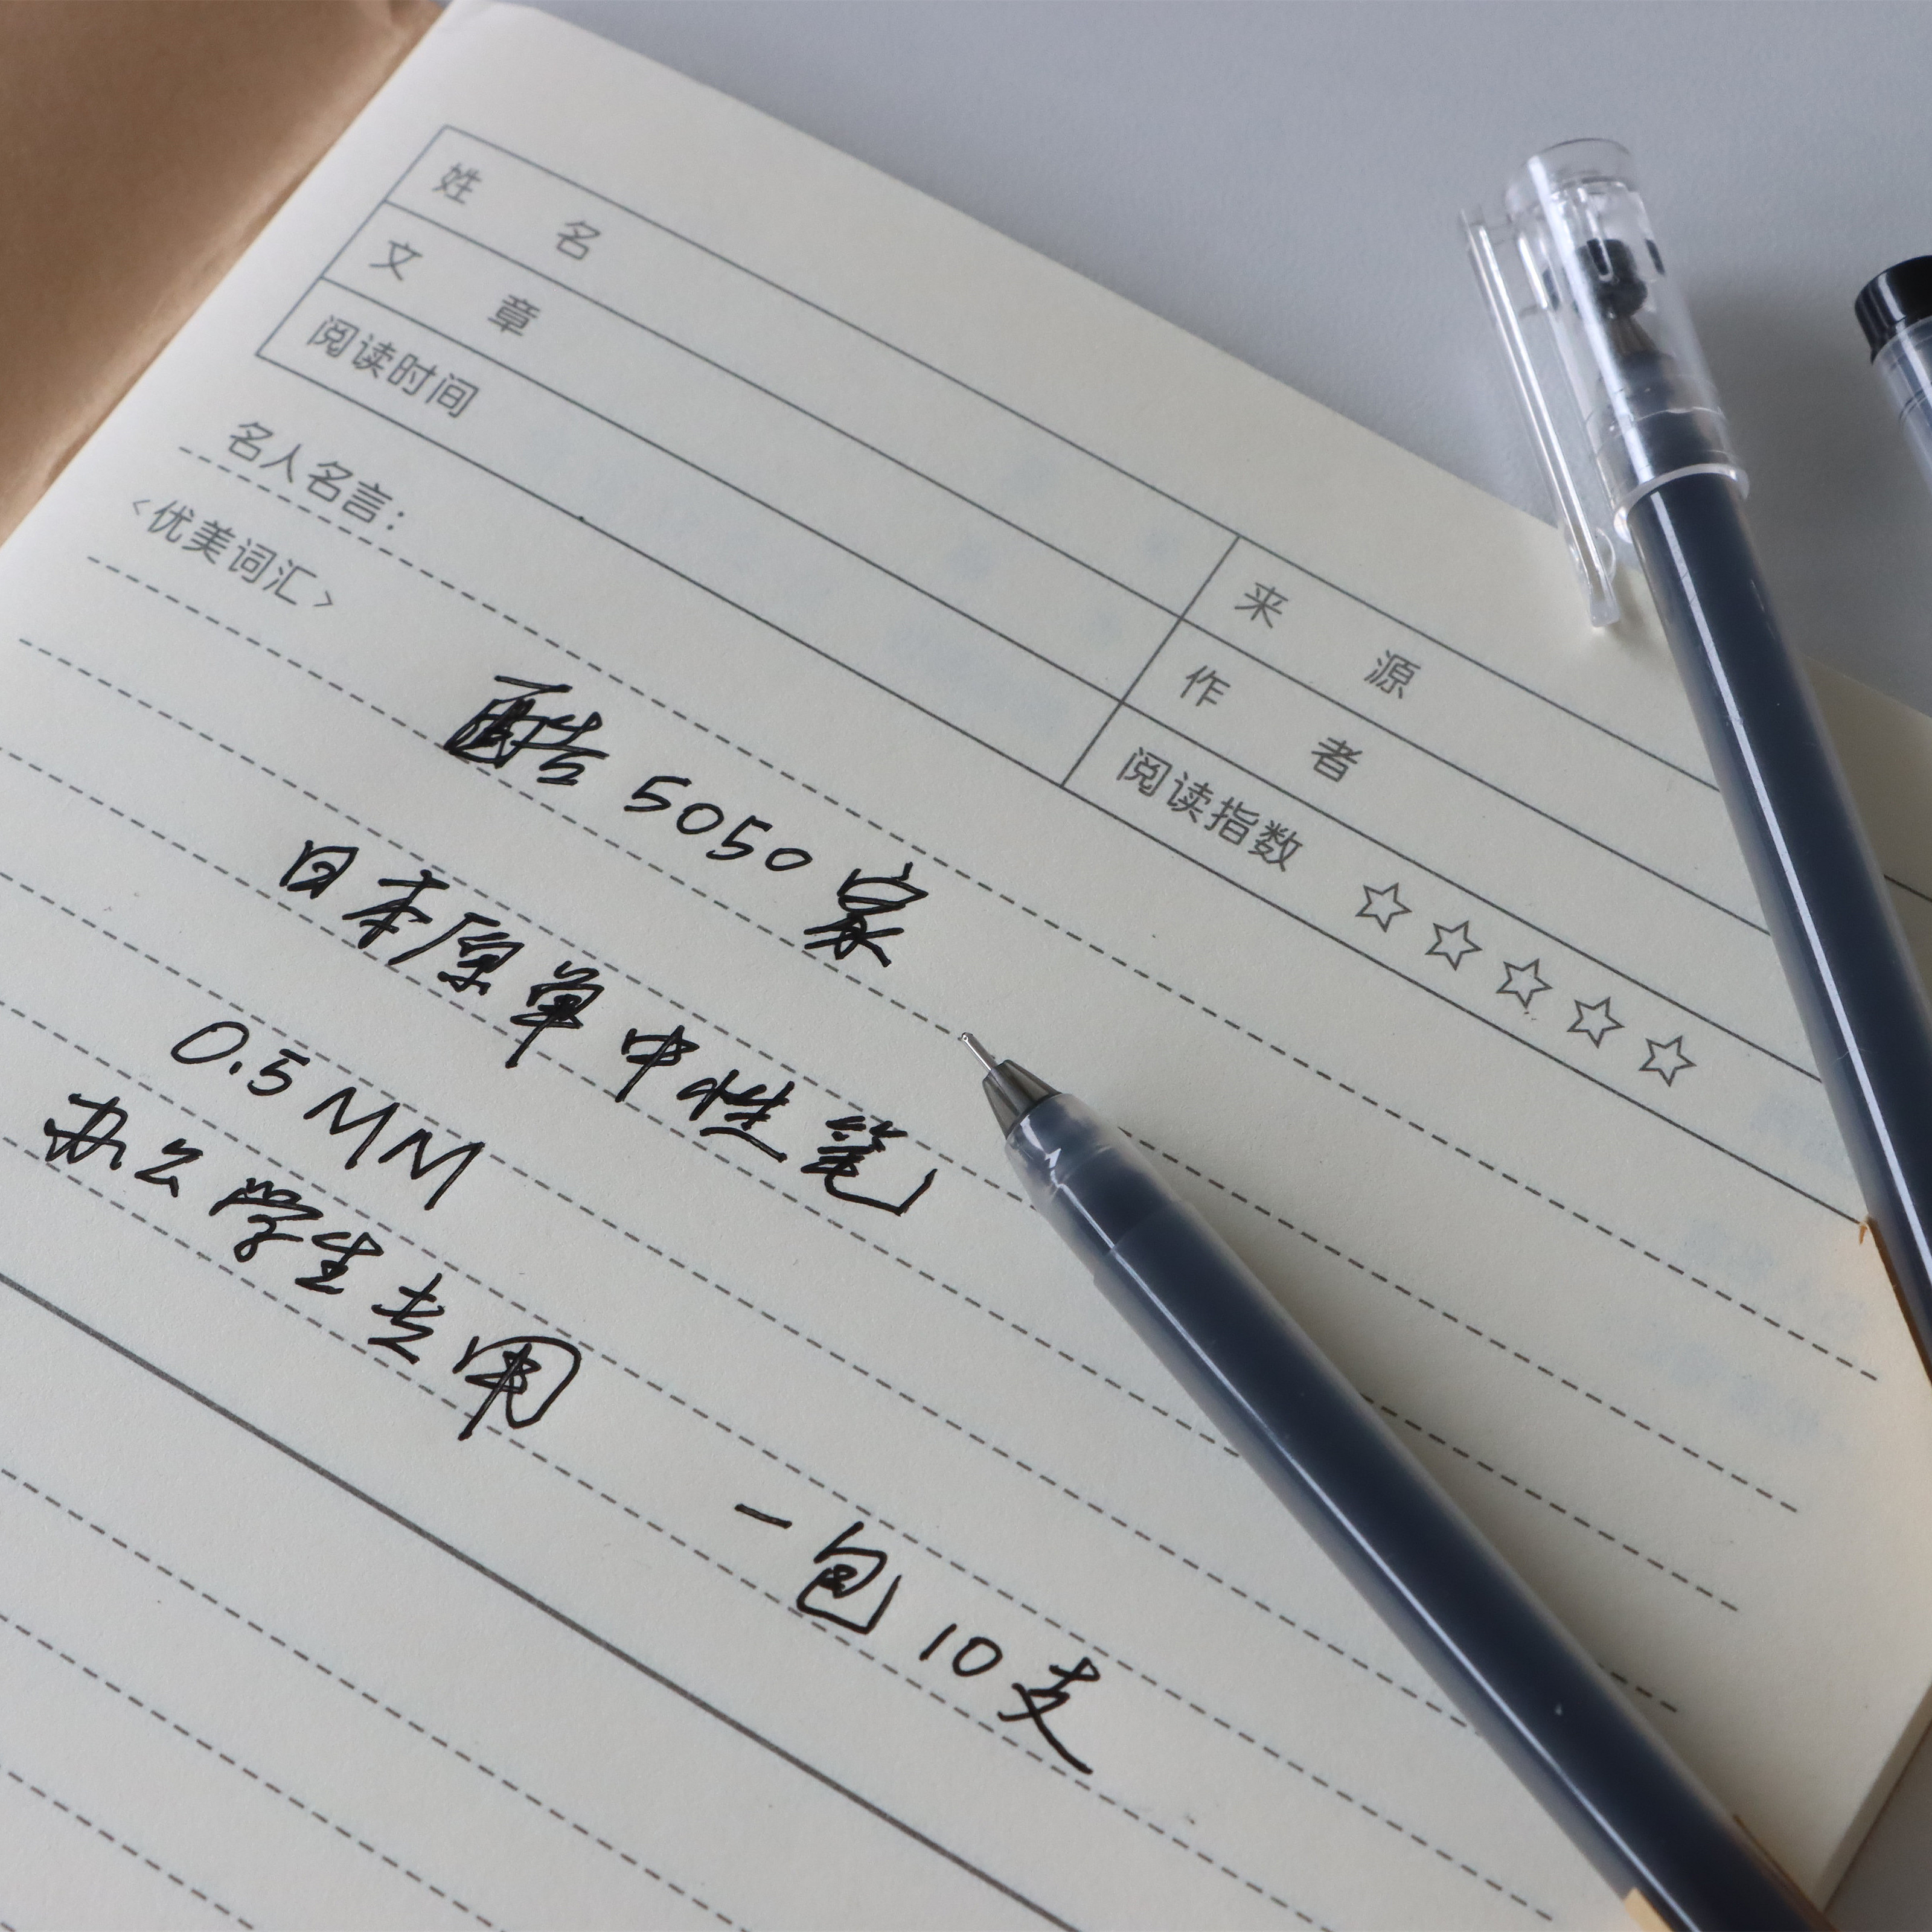 姓名
来源
文章
作者
阅读时间
阅读指数 ☆☆☆☆☆
名人名言：
<优美词汇>
酷5050家
日本原单中性笔
0.5MM
办公学生专用
一包10支